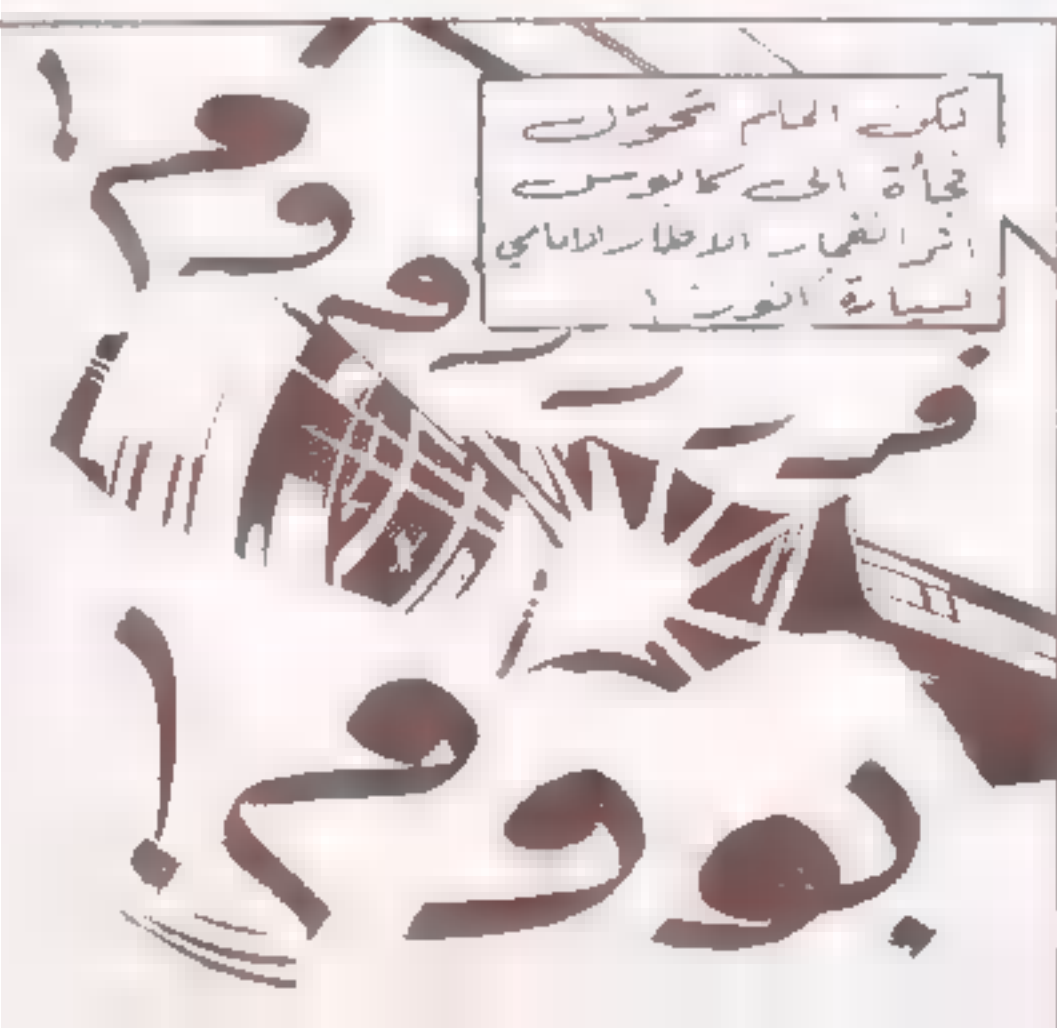 لكن الحلم تحوّل
فجأة الى كابوس
اثر انفجار الاطار الامامي
لسيارة
فررررووم!
بوووم!